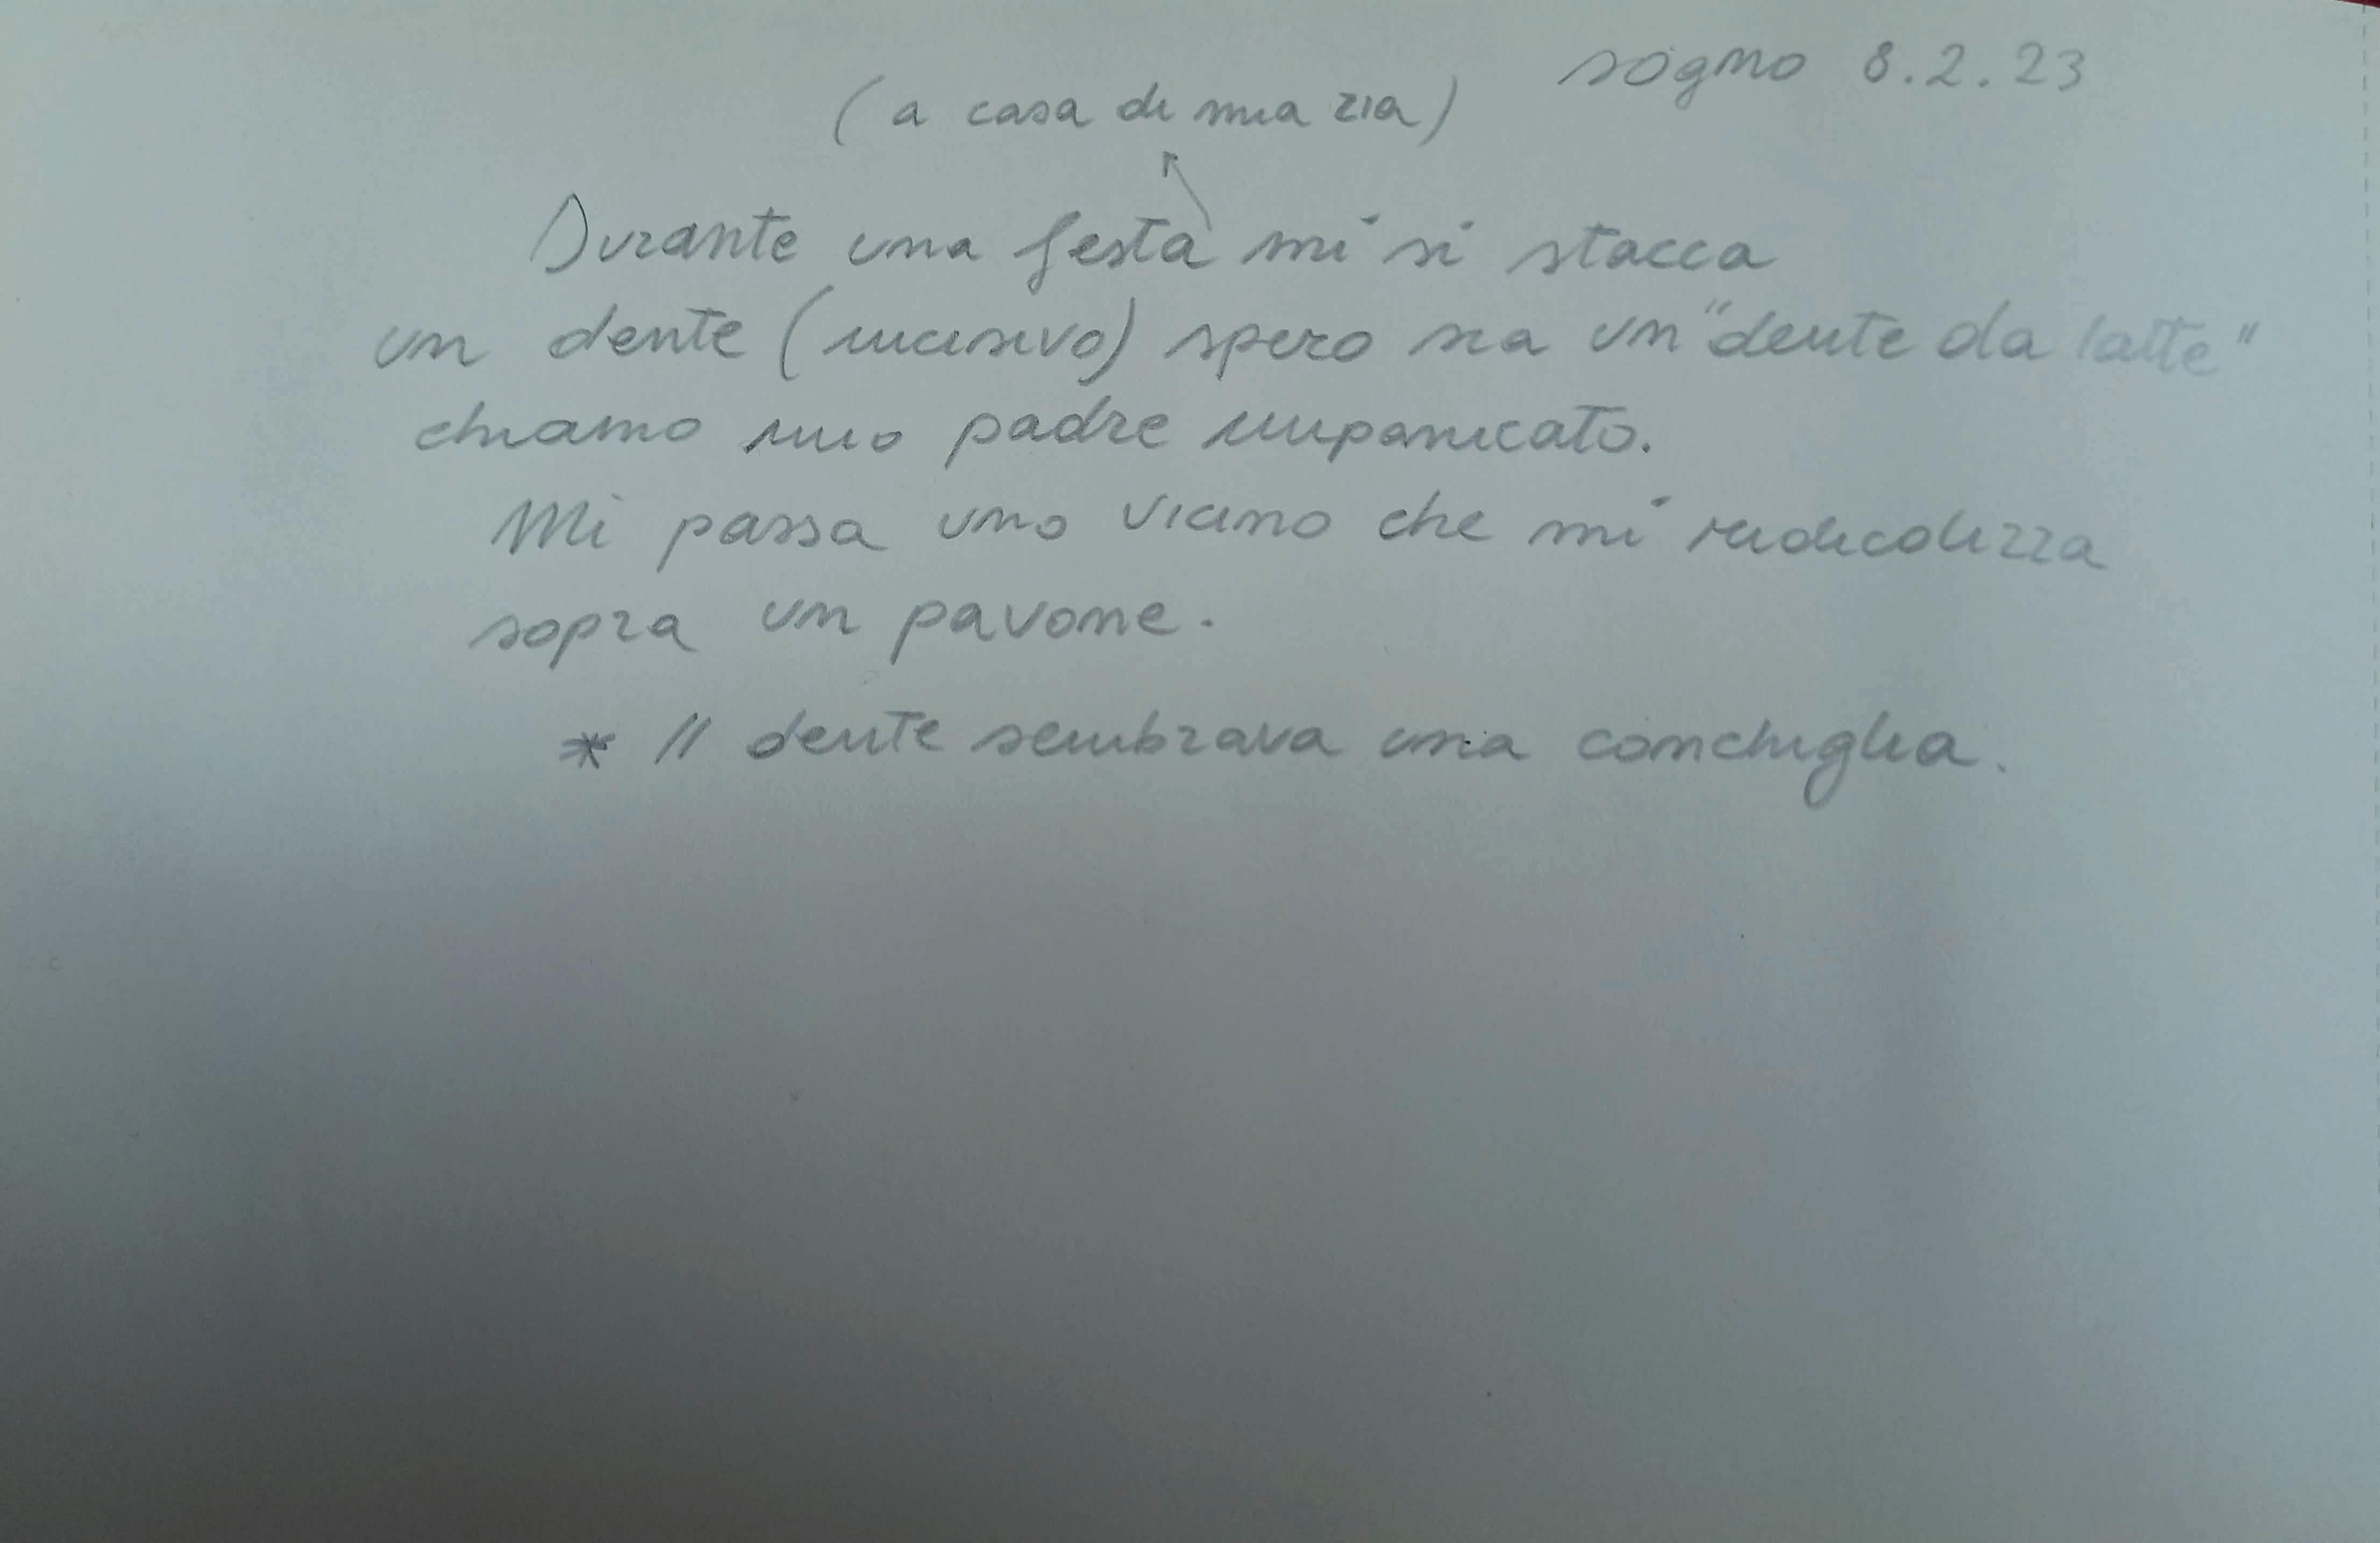 sogno 8.2.23
(a casa di mia zia)
Durante una festa mi si stacca
un dente (incisivo) spero sia un "dente da latte"
chiamo mio padre impanicato.
Mi passa uno vicino che mi ridicolizza
sopra un pavone.
* Il dente sembrava una conchiglia.